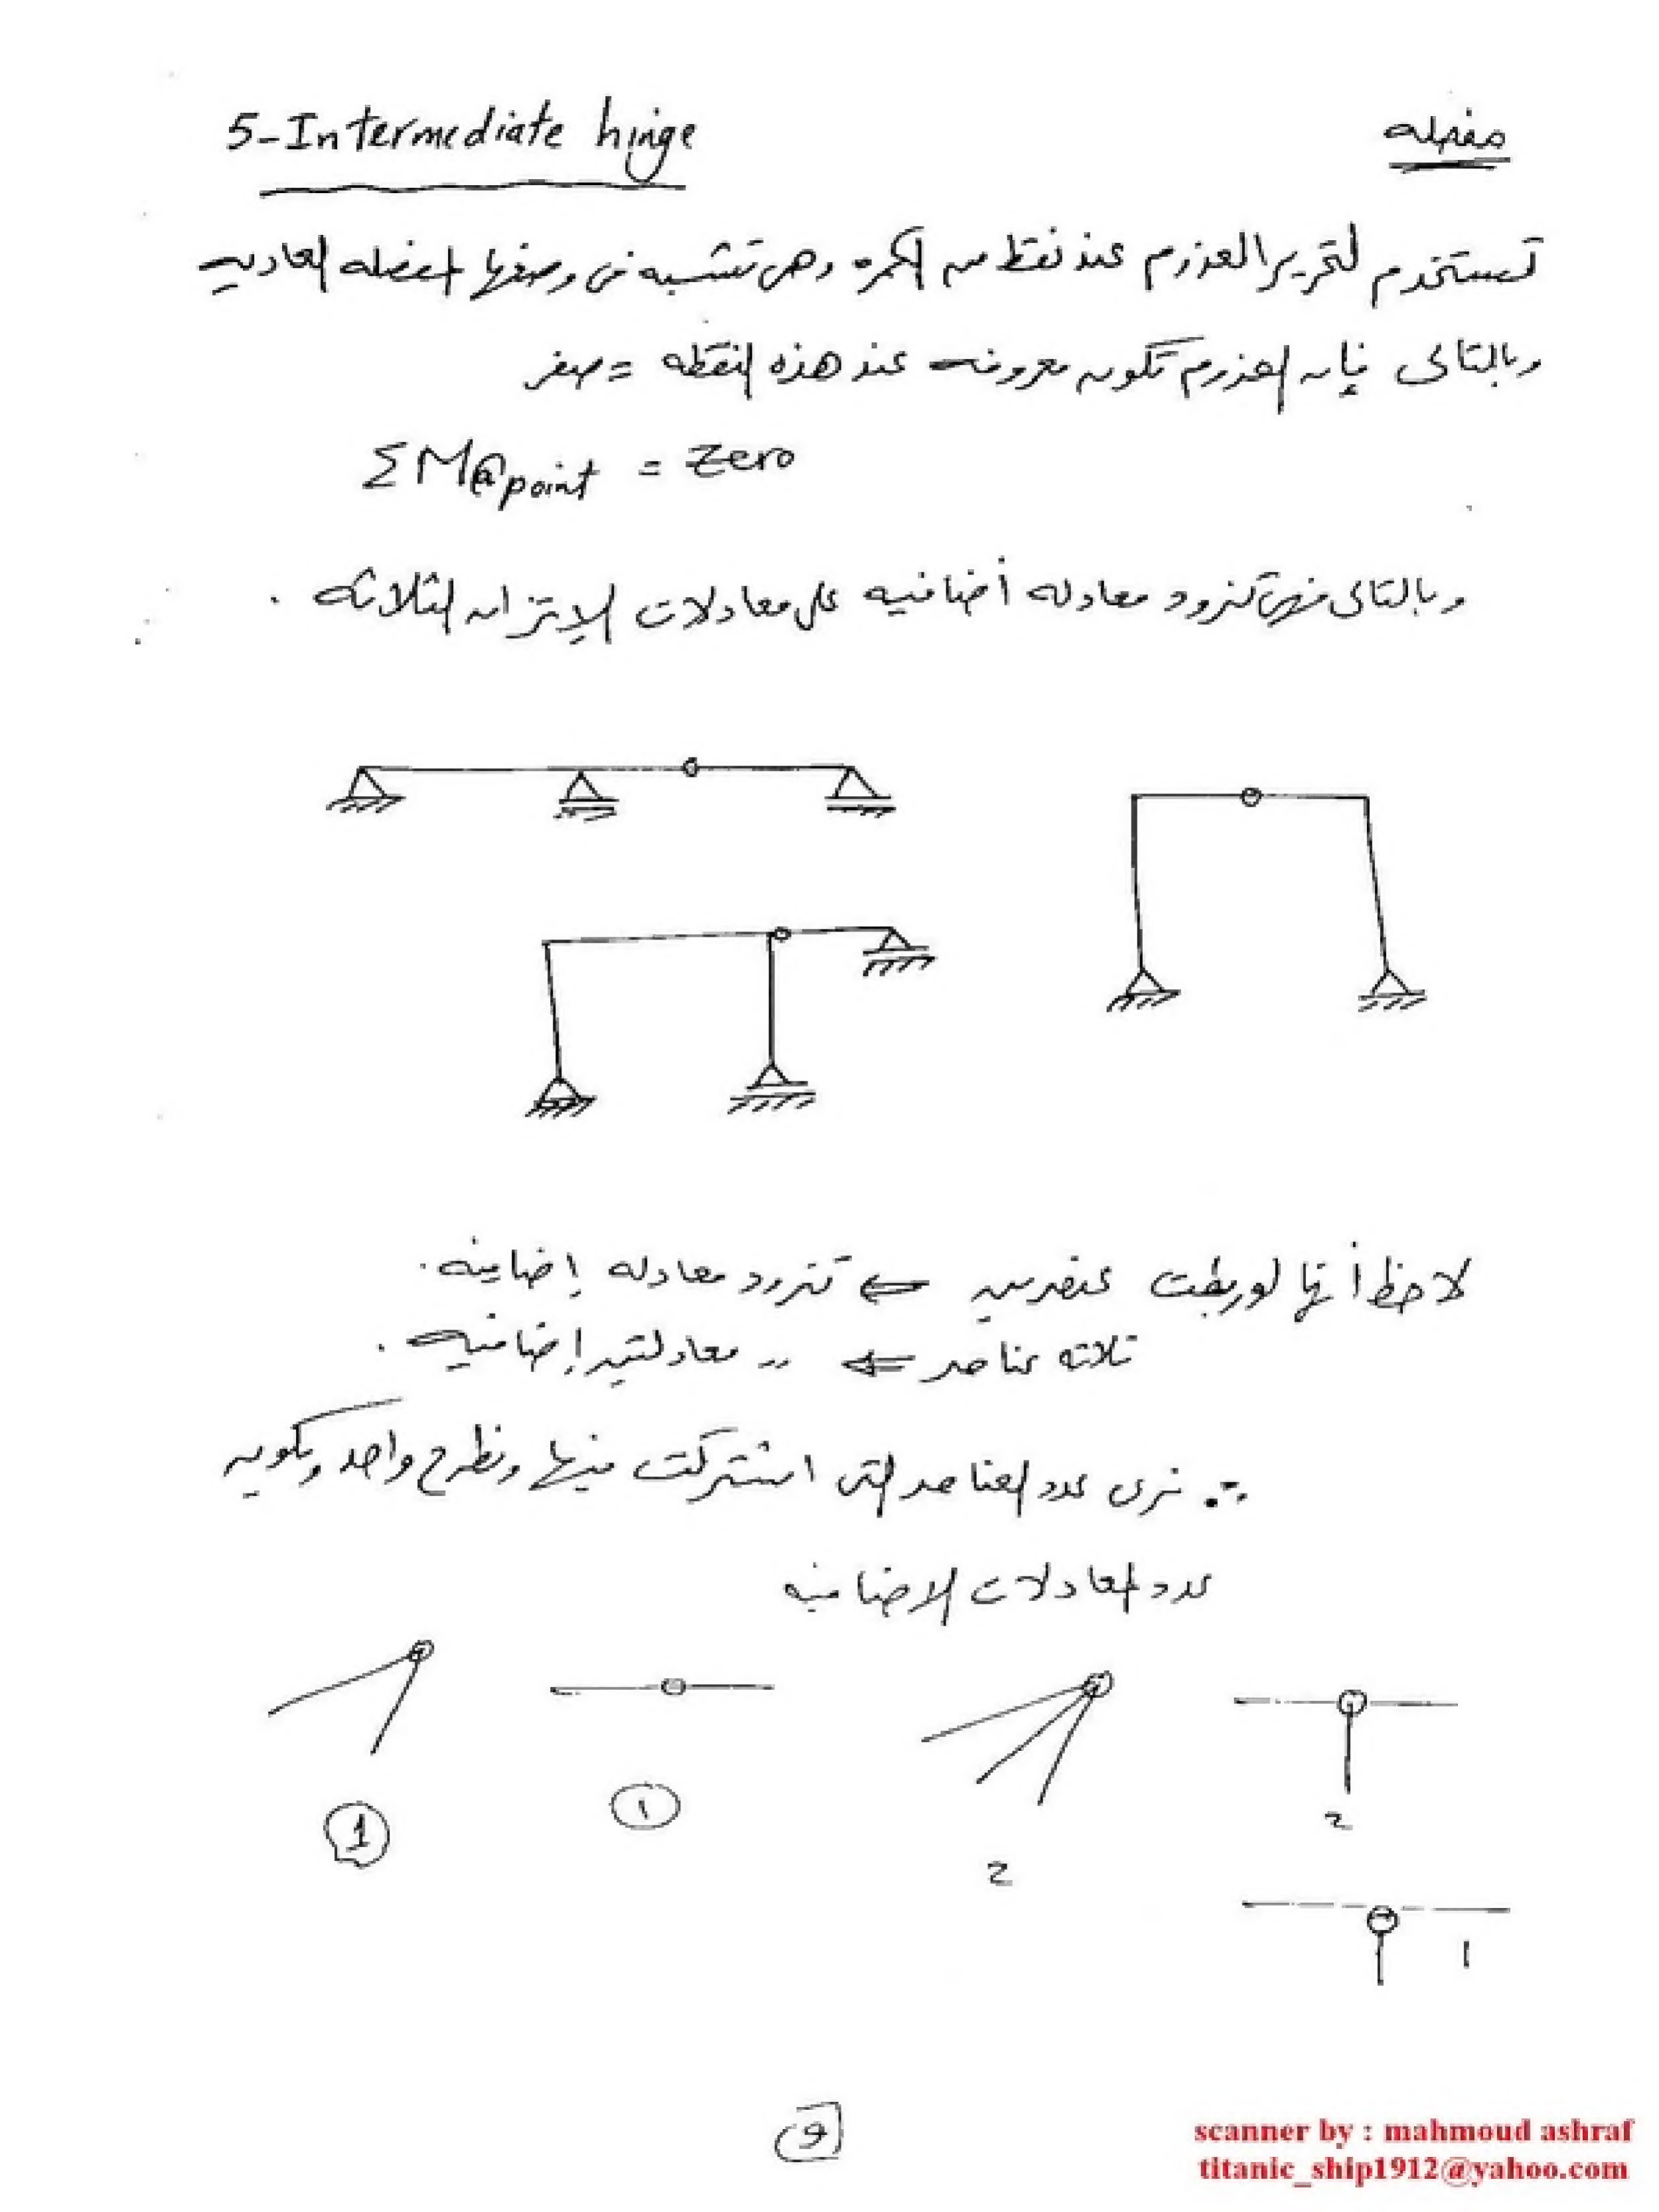 5-Intermediate hinge
مفصله
تستخدم لتحرير العزوم عند نقطه من الكمره وهى تشبه فى وصفها المفصله العاديه
وبالتالى فإن العزوم تكون معروفه عند هذه النقطه = صفر
ΣM@point = Zero
وبالتالى فهى تزود معادله أضافيه على معادلات الإتزان الثلاثه .
لاحظ أنها لو ربطت عنصرين ⇐ تزود معادله إضافيه .
ثلاثه عناصر ⇐ ,, معادلتين إضافيه .
∴ نرى عدد العناصر التى اشتركت فيها ونطرح واحد ويكون
عدد المعادلات الاضافيه
1
1
2
2
1
9
scanner by : mahmoud ashraf
titanic_ship1912@yahoo.com